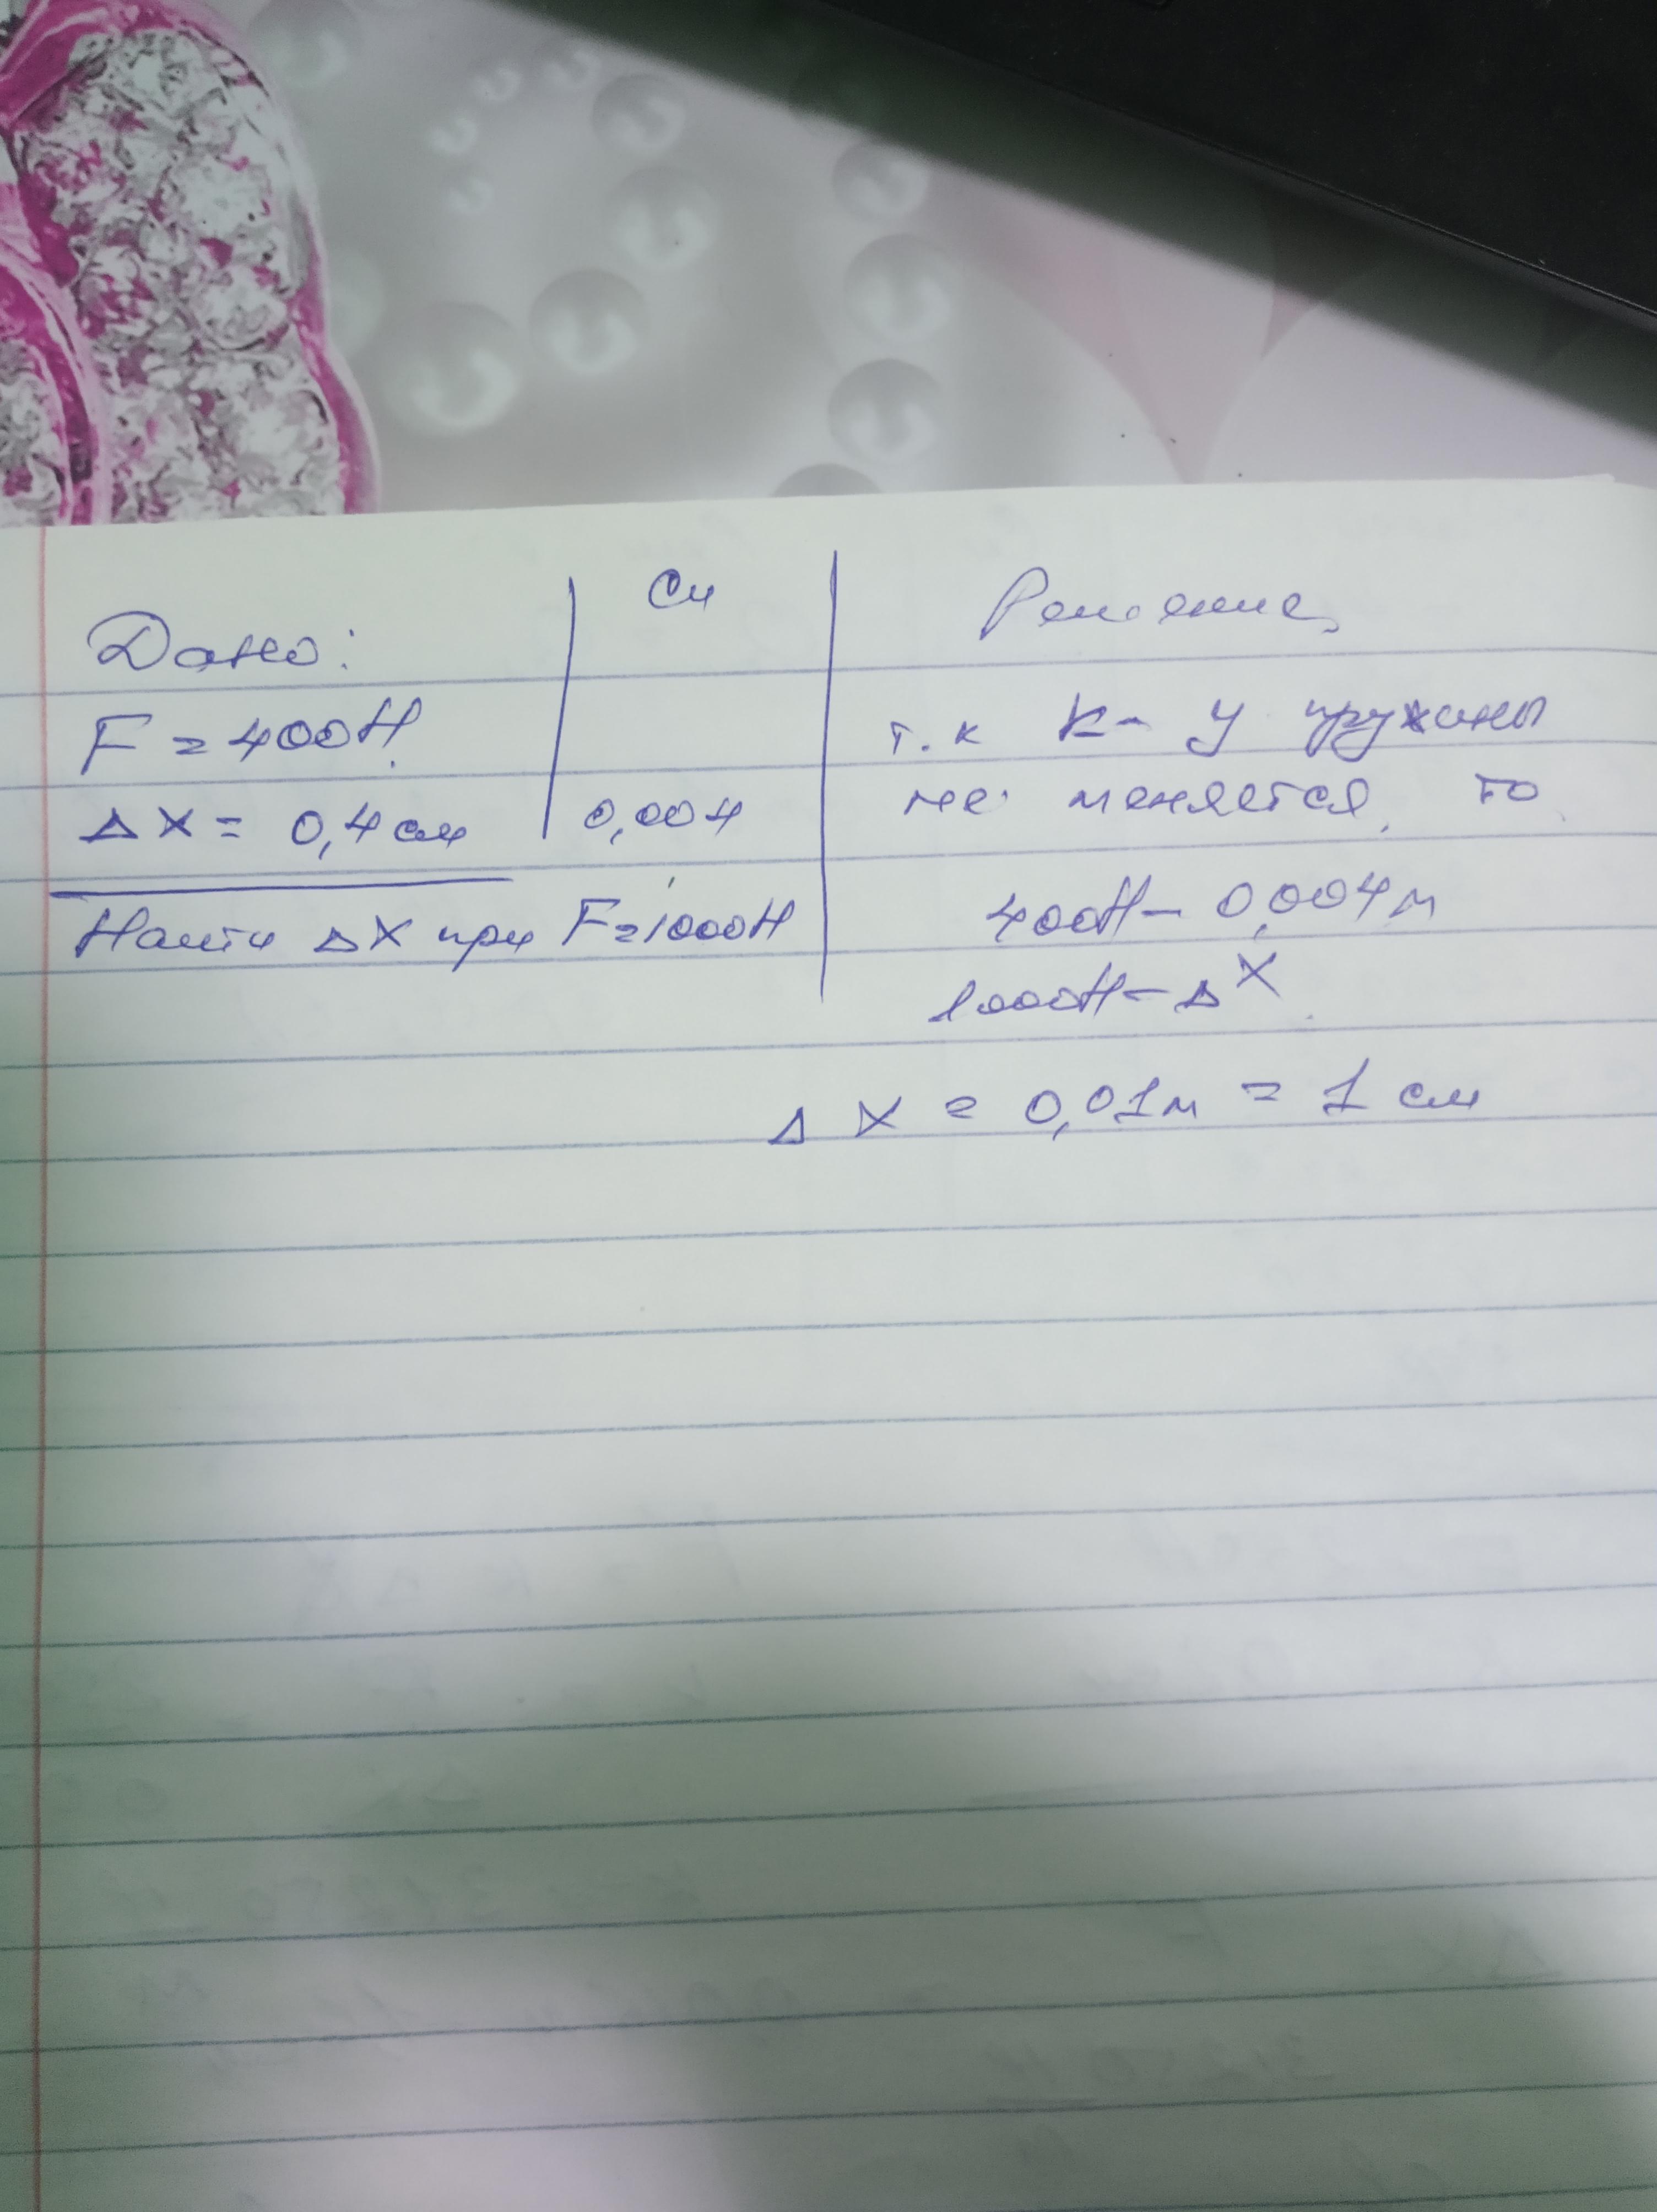 Дано:
Си
Решение
F = 400Н
Δx = 0,4 см
0,004
Найти Δx при F=1000Н
т.к k - у пружины
не меняется, то
400Н - 0,004м
1000Н - Δx
Δx = 0,01м = 1 см